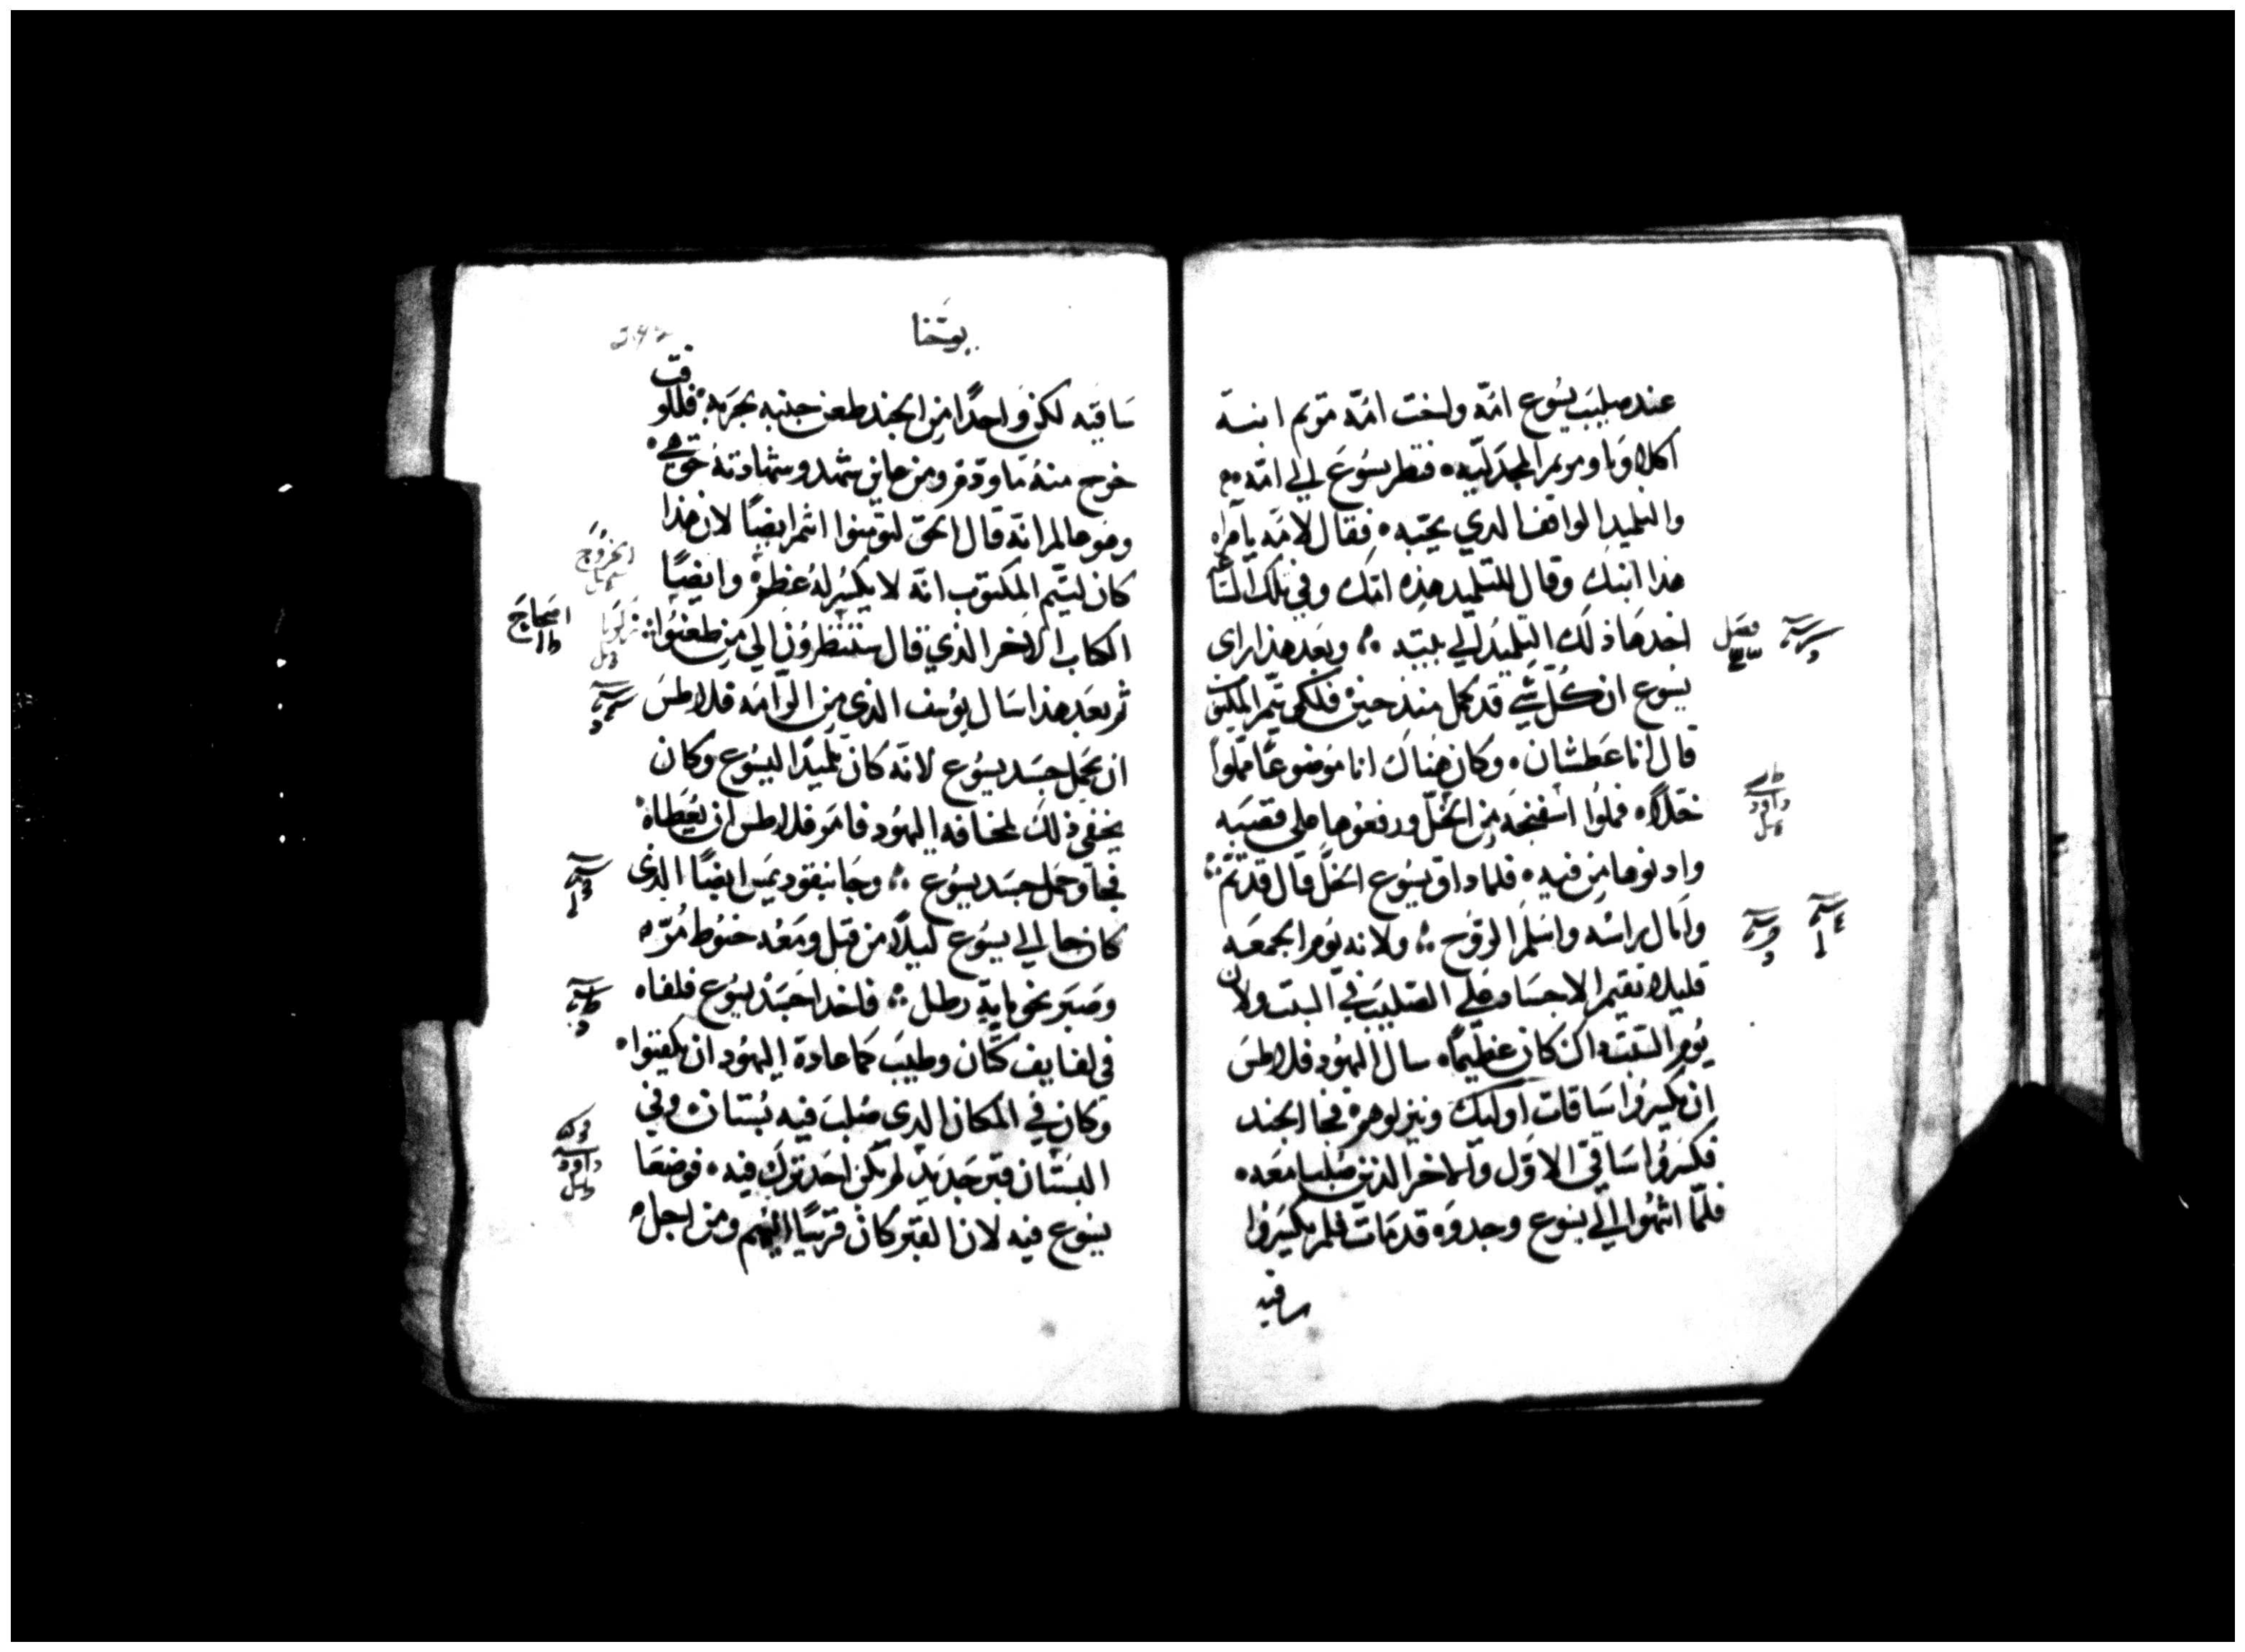 عند صليب يسوع امّه واخت امّه مريم ابنة
اكلاوبا ومريم المجدليّه ۰ فنظر يسوع الي امّه
والتلميد الواقف الدي يحبّه ۰ فقال لامّه يا مراه
هذا ابنك وقال للتلميد هذه امّك وفي تلك السّا
اخدها ذلك التلميد الي بيته ؞ وبعد هذا راي
فصل
يسوع ان كلّ شي قد كمل منذ حين فلكي يتم المكتو
قال انا عطشان ۰ وكان هناك انا موضوعًا مملوا
داود
خلّاً ۰ فملوا اسفنجه من الخلّ ورفعوها علي قصبه
وادنوها من فيه ۰ فلما داق يسوع الخلّ قال قد تمّ ؞
وامال براسه واسلم الروح ؞ ولانه يوم الجمعه
قليلا تقيم الاجساد علي الصّليب في السبت ولان
يوم السّبت داك كان عظيمًا ۰ سال اليهود فلاطس
ان يكسروا ساقات اوليك وينزلوهم ۰ فجا الجند
فكسروا ساقي الاوّل والاخر الدين صلبا معه ۰
فلمّا انتهوا الي يسوع وجدوه قد مات فلم يكسروا
ساقيه
يوحّنا
ساقيه لكن واحدًا من الجند طعن جنبه بحربه ۰ فللو
قت
خرج منه ما ودم ومن عاين شهد وشهادته حق هي ۰
وهو عالم انّه قال الحق لتومنوا انتم ايضًا لان هذا
الخروج
كان ليتّم المكتوب انّه لا يكسر له عظم ۰ وايضًا
اصحاح
زكريا
الكتاب الاخر الذي قال ستنظرون الي من طعنوا ؞
ثم بعد هذا سال يوسف الذي من الرّامه فلاطس
ان يحمل جسد يسوع لانّه كان تلميدًا ليسوع وكان
يخفي ذلك لمخافه اليهود فامر فلاطس ان يعطاه
فجا وحمل جسد يسوع ؞ وجا نيقوديمس ايضًا الذي
كان جا الي يسوع ليلًا من قبل ومعه حنوط مرّ ۰
وصبر نحو ماية رطل ؞ فاخدا جسد يسوع فلفاه
في لفايف كتّان وطيب كما عادة اليهود ان يكفنوا ۰
وكان في المكان الدي صلب فيه بستان ۰ وفي
داود
البستان قبر جديد لم يكن احد ترك فيه ۰ فوضعا
يسوع فيه لان القبر كان قريبًا اليهم ومن اجل ۰